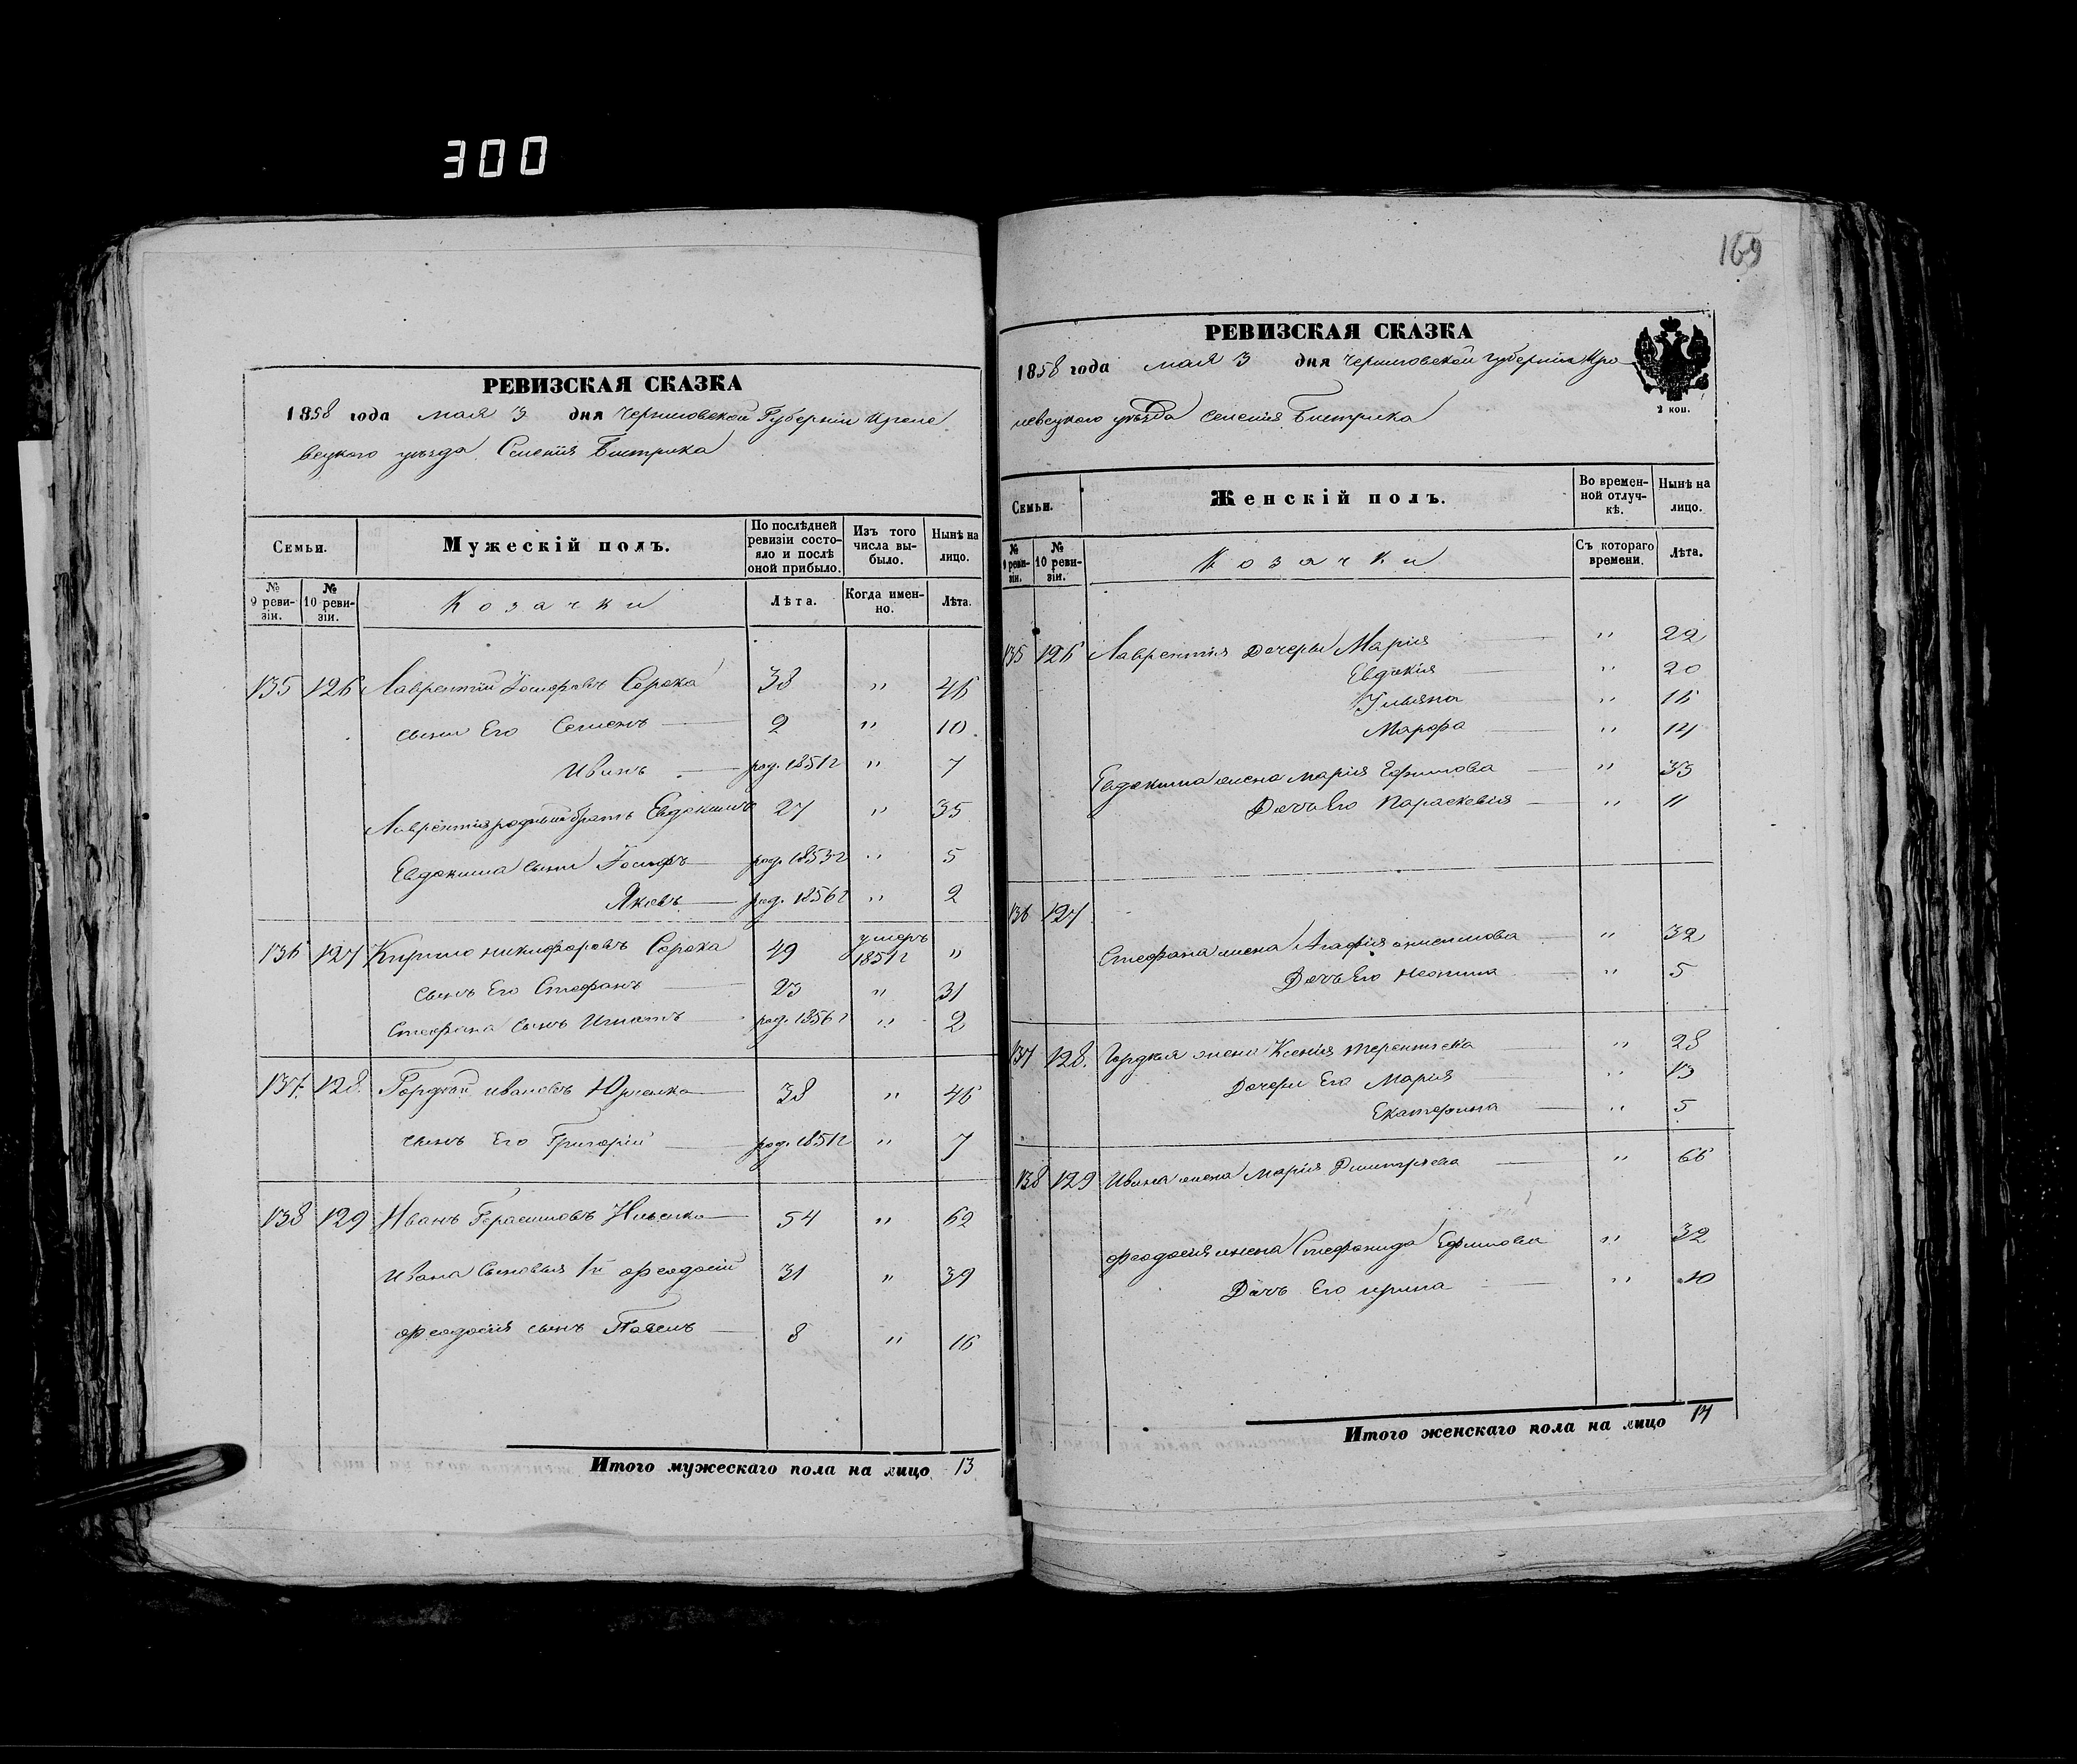 300
РЕВИЗСКАЯ СКАЗКА
1858 года мая 3 дня Черниговской Губерніи Кроле
вецкого уѣзда Селенія Быстрика
Семьи.
Мужескій полъ.
По послѣдней ревизіи состо-яло и послѣ оной прибыло.
Изъ того числа вы-было.
Нынѣ на лицо.
№ 9 реви-зіи.
№ 10 реви-зіи.
Козачки
Лѣта.
Когда имен-но.
Лѣта.
135 126 Лаврентій Іосифовъ Сорока 38 " 46
сыни Его Семенъ 2 " 10
Иванъ род. 1851 г " 7
Лаврентія родный братъ Евдокимъ 27 " 35
Евдокима сыни Іосифъ род. 1853 г " 5
Яковъ род. 1856 г " 2
136 127 Кирило никифоровъ Сорока 49 умеръ 1851 г "
сынъ Его Стефанъ 23 " 31
Стефана сынъ Игнатъ род. 1856 г " 2
137. 128. Гордѣй ивановъ 38 " 46
сынъ Его Григорій род. 1851 г " 7
138 129 Иванъ Герасимовъ 54 " 62
Ивана сыновья 1й Феодосій 31 " 39
Феодосія сынъ Павелъ 8 " 16
Итого мужескаго пола на лицо 13
169
РЕВИЗСКАЯ СКАЗКА
1858 года мая 3 дня Черниговской губерніи Кро
левецкого уѣзда селенія Быстрика
2 коп.
Семьи.
Женскій полъ.
Во времен-ной отлуч-кѣ.
Нынѣ на лицо.
№ 9 реви-зіи.
№ 10 реви-зіи.
Козачки
Съ котораго времени.
Лѣта.
135 126 Лаврентія дочери Марія " 22
Евдокія " 20
Ульяна " 16
Марфа " 14
Евдокима жена марія Ефимова " 33
Дочь Его Параскевія " 11
136 127
Стефана жена Агафія онисимова " 32
Дочь Его " 5
137 128. Гордѣя жена Ксенія терентьева " 28
Дочери Его Марія " 13
Екатерина " 5
138 129 Ивана жена Марія Дмитріева " 66
Феодосія жена Стефанида Ефимова " 32
Дочь Его ирина " 10
Итого женскаго пола на лицо 14